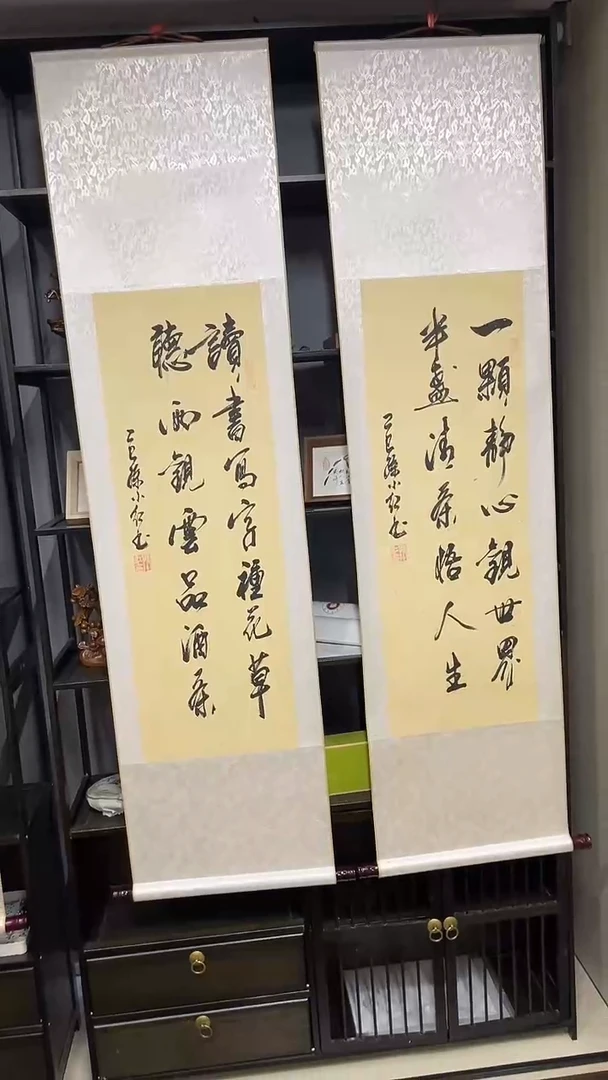 一顆靜心觀世界
半盞清茶悟人生
乙巳孫小紅書
讀書寫字種花草
聽雨觀雲品酒茶
乙巳孫小紅書